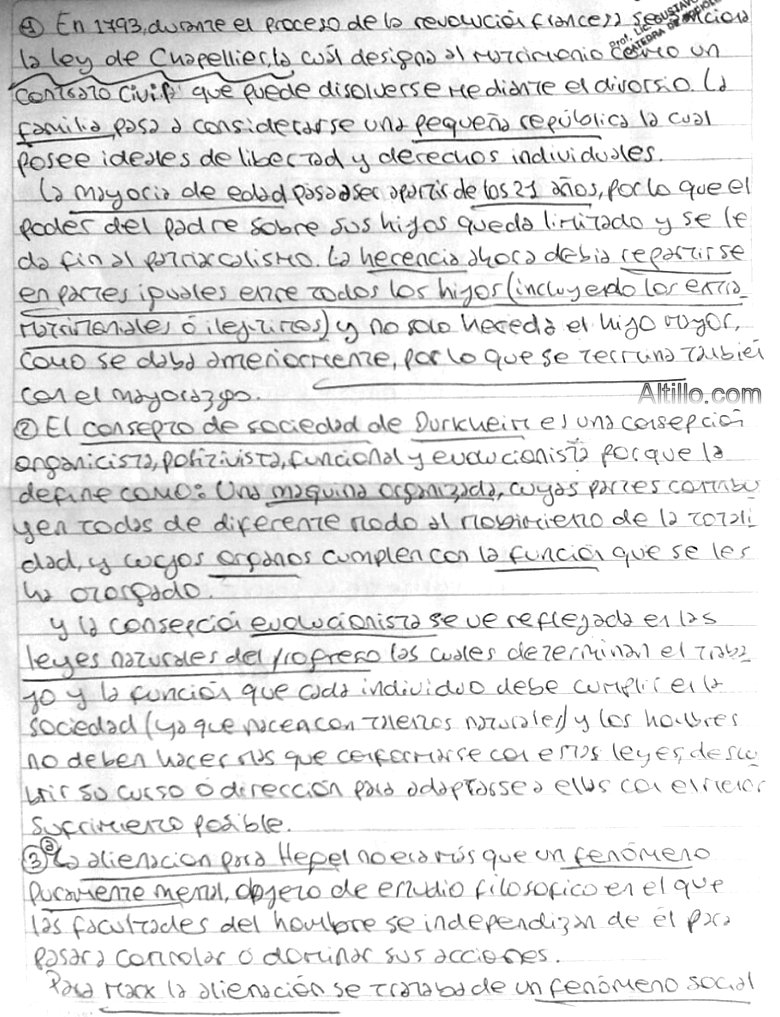 ① En 1793, durante el proceso de la revolución francesa se
la ley de Chapellier, la cuál designa al matrimonio como un
contrato civil que puede disolverse mediante el divorsio. La
familia pasa a considerarse una pequeña república la cual
posee ideales de libertad y derechos individuales.
La mayoria de edad pasa a ser apartir de los 21 años, por lo que el
poder del padre sobre sus hijos queda limitado y se le
da fin al patriarcalismo. La herencia ahora debia repartirse
en partes iguales entre todos los hijos (incluyendo los extra
matrimoniales o ilegitimos) y no solo hereda el hijo mayor,
como se daba anteriormente, por lo que se termina tambien
con el mayorazgo.
Altillo.com
② El consepto de sociedad de Durkheim es una consepción
organicista, positivista, funcional y evolucionista porque la
define como: Una maquina organizada, cuyas partes contribu
yen todas de diferente modo al mobimiento de la totali
dad, y cuyos organos cumplen con la función que se les
ha otorgado.
y la consepción evolucionista se ve reflejada en las
leyes naturales del progreso las cuales determinan el traba
jo y la función que cada individuo debe cumplir en la
sociedad (ya que nacen con talentos naturales) y los hombres
no deben hacer mas que conformarse con estas leyes, descu
brir su curso o dirección para adaptarse a ellas con el menor
sufrimiento posible.
③ a La alienacion para Hegel no era más que un fenómeno
puramente mental, objeto de estudio filosofico en el que
las facultades del hombre se independizan de él para
pasar a controlar o dominar sus acciones.
Para Marx la alienación se trataba de un fenómeno social